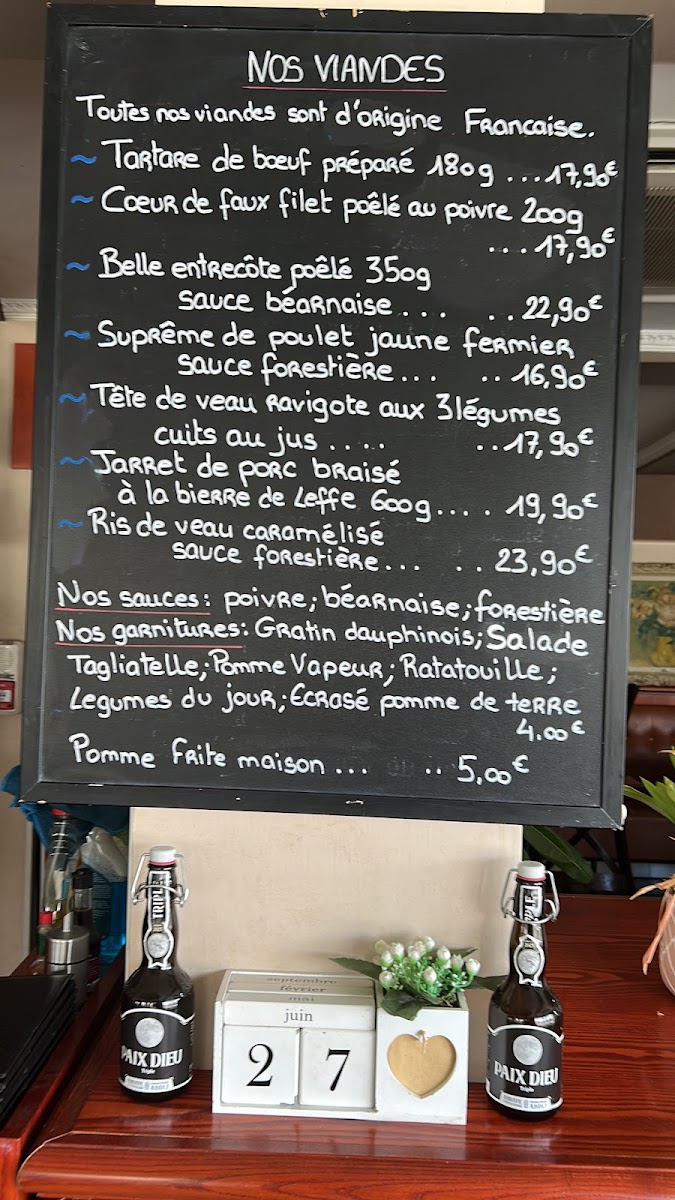 NOS VIANDES
Toutes nos viandes sont d'origine Francaise.
~ Tartare de bœuf préparé 180g ... 17,90€
~ Coeur de faux filet poêlé au poivre 200g
... 17,90€
~ Belle entrecôte poêlé 350g
sauce béarnaise ... .. 22,90€
~ Suprême de poulet jaune fermier
sauce forestière ... .. 16,90€
~ Tête de veau ravigote aux 3 légumes
cuits au jus ..... .. 17,90€
~ Jarret de porc braisé
à la bierre de Leffe 600g .... . 19,90€
~ Ris de veau caramélisé
sauce forestière ... .. 23,90€
Nos sauces: poivre; béarnaise; forestière
Nos garnitures: Gratin dauphinois; Salade
Tagliatelle; Pomme Vapeur; Ratatouille;
Legumes du jour; Ecrasé pomme de terre
4.00€
Pomme frite maison ... .. 5,00€
septembre
février
mai
juin
2 7
TRIPLE
PAIX DIEU
Triple
TRIPLE
PAIX DIEU
Triple